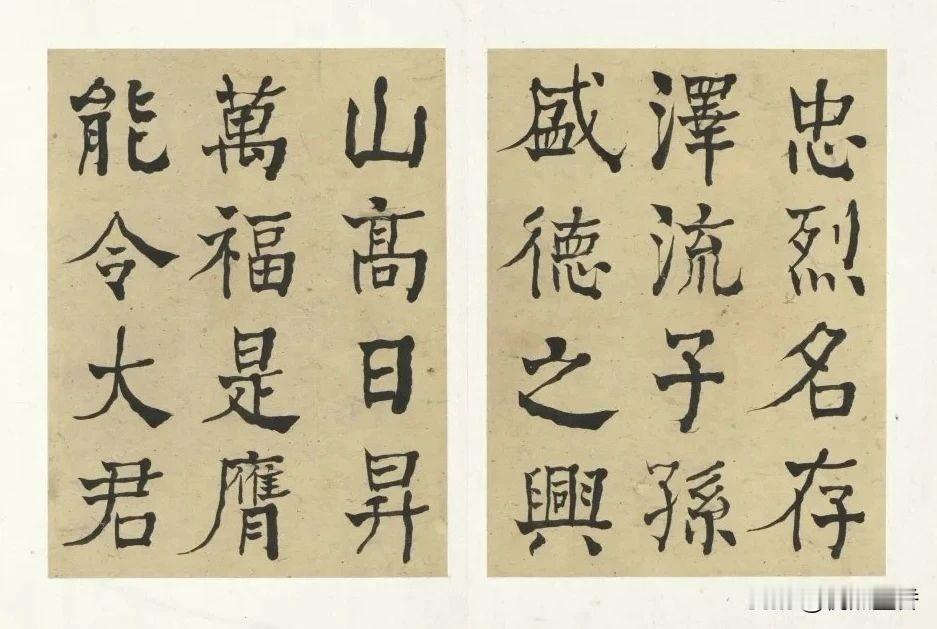 忠烈名存
澤流子孫
盛德之興
山高日昇
萬福是膺
能令大君